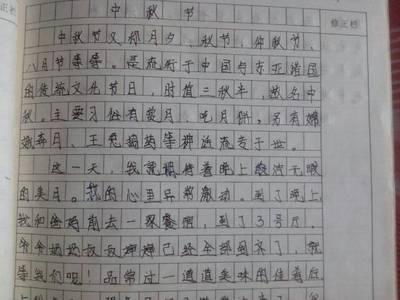 中秋节
修正栏
正栏
中秋节又称月夕、秋节、仲秋节、
八月节等等。是流行于中国与东亚诸国
的传统文化节日，时值三秋半，故名中
秋。主要习俗有赏月、吃月饼，另有嫦
娥奔月、玉兔捣药等神话流走于世。
这一天，我就期待着晚上皎洁无暇
的美月。我的心里异常激动。到了晚上
我和爸妈同去一家餐厅，到了3号厅。
爷爷奶奶叔叔婶婶已经全部到齐了，就
等我们呢！品尝过一道道美味的佳肴后